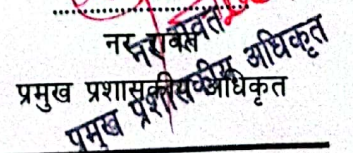 नर रावत
प्रमुख प्रशासकीय अधिकृत
प्रमुख प्रशासकीय अधिकृत